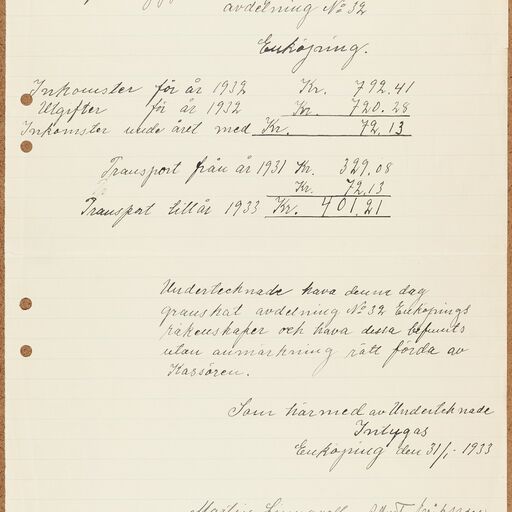 avdelning No 32
Enköping.
Inkomster för år 1932 Kr. 792.41
Utgifter för år 1932 Kr. 720.28
Inkomster unde året med Kr. 72,13
Transport från år 1931 Kr. 329.08
Kr. 72,13
Transport till år 1933 Kr. 401,21
Undertecknade hava denna dag
granskat avdelning No 32 Enköpings
räkenskaper och hava dessa befunits
utan anmärkning rätt förda av
Kassören.
Som härmed av Underteknade
Intygas
Enköping den 31/1 - 1933
Martin